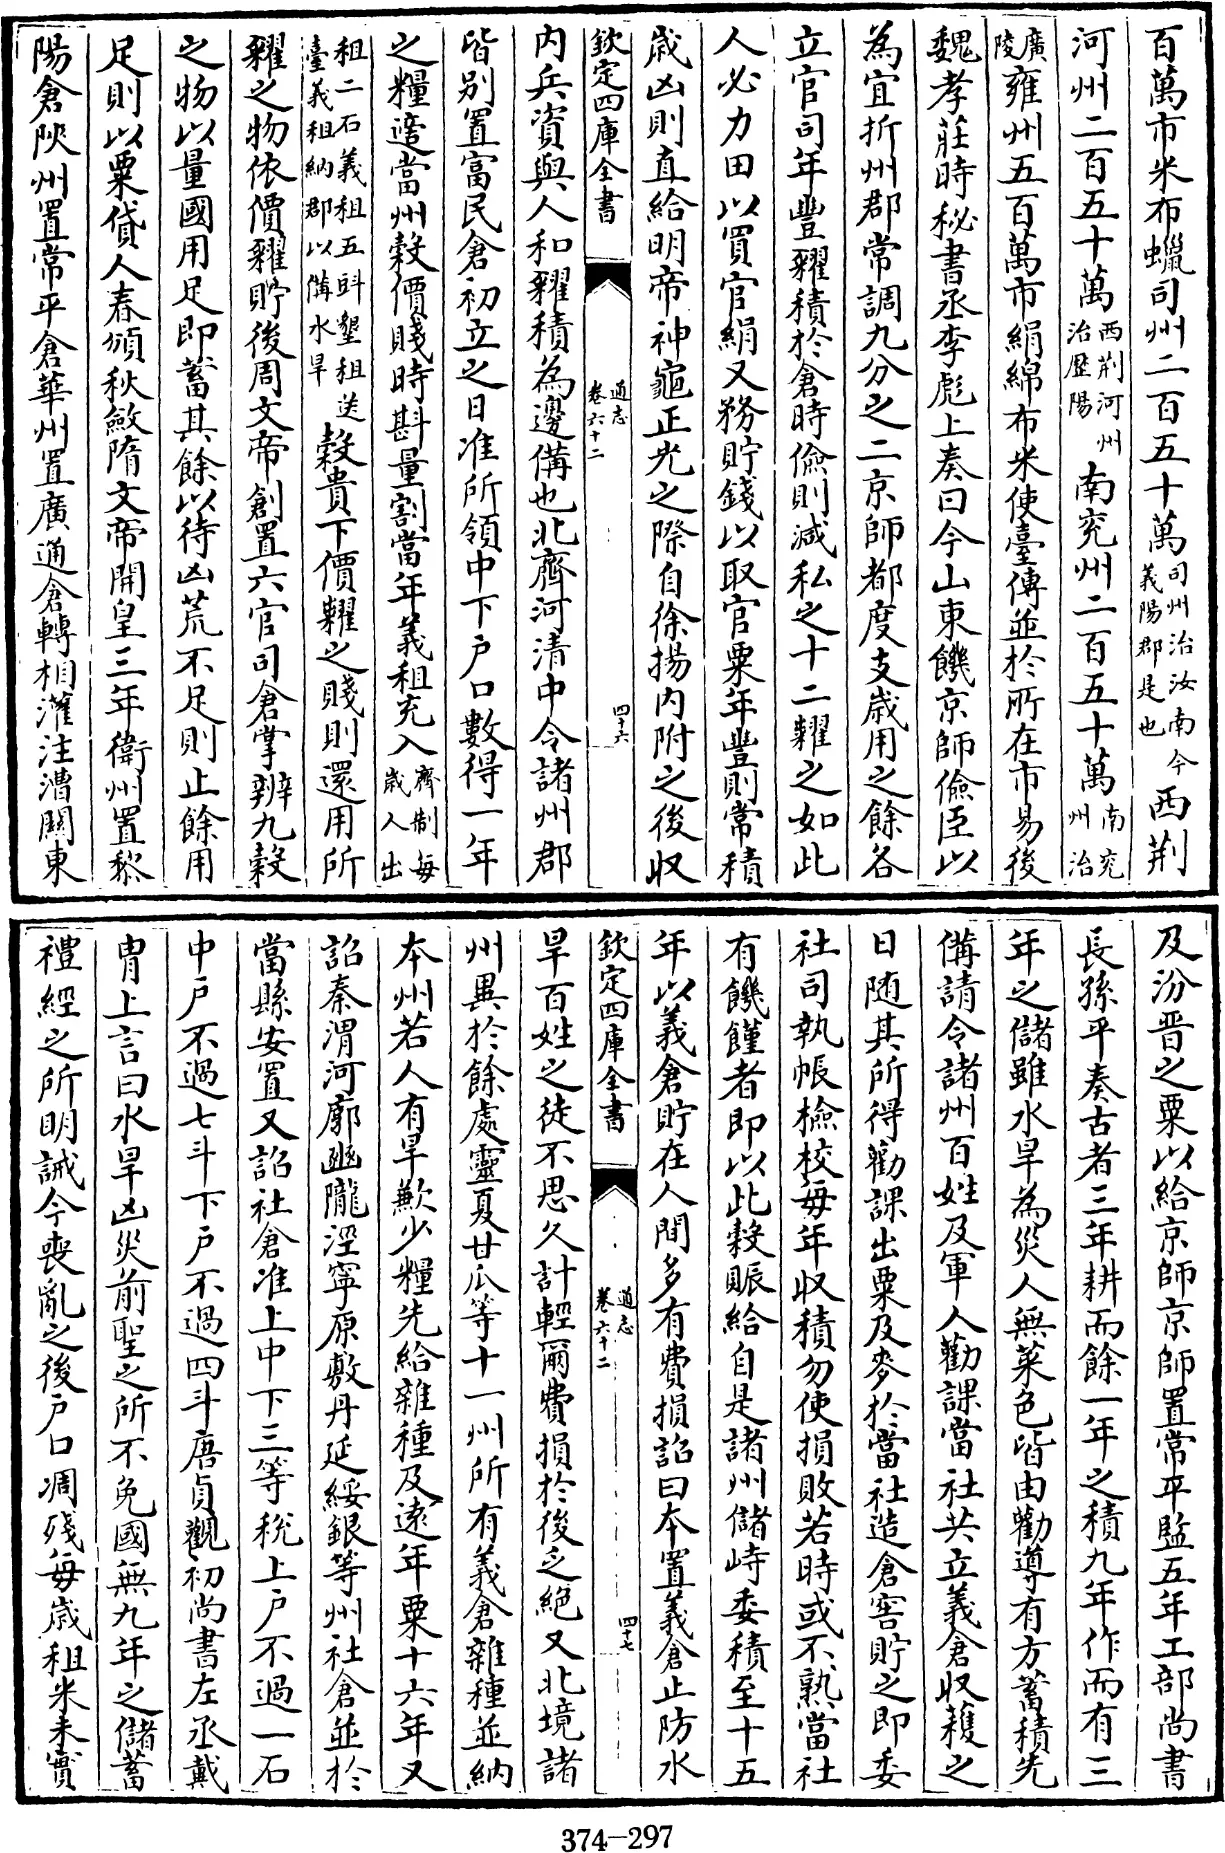 百萬市米布蠟司州二百五十萬司州治汝南今義陽郡是也西荆
河州二百五十萬西荆河州治歷陽南兖州二百五十萬南兖州治
廣陵雍州五百萬市絹綿布米使臺傳並於所在市易後
魏孝莊時秘書丞李彪上奏曰今山東饑京師儉臣以
為宜折州郡常調九分之二京師都度支歲用之餘各
立官司年豐糴積於倉時儉則減私之十二糶之如此
人必力田以買官絹又務貯錢以取官粟年豐則常積
歲凶則直給明帝神龜正光之際自徐揚内附之後收
欽定四庫全書
通志
卷六十二
四十六
内兵資與人和糴積為邊備也北齊河清中令諸州郡
皆别置富民倉初立之日准所領中下户口數得一年
之糧逐當州穀價賤時斟量割當年義租充入齊制每歲人出
租二石義租五㪷墾租送臺義租納郡以備水旱穀貴下價糶之賤則還用所
糴之物依價糴貯後周文帝創置六官司倉掌辨九穀
之物以量國用足即蓄其餘以待凶荒不足則止餘用
足則以粟貸人春頒秋斂隋文帝開皇三年衛州置黎
陽倉陜州置常平倉華州置廣通倉轉相灌注漕關東
及汾晋之粟以給京師京師置常平監五年工部尚書
長孫平奏古者三年耕而餘一年之積九年作而有三
年之儲雖水旱為災人無菜色皆由勸導有方蓄積先
備請令諸州百姓及軍人勸課當社共立義倉收穫之
日隨其所得勸課出粟及麥於當社造倉窖貯之即委
社司執帳檢校每年收積勿使損敗若時或不熟當社
有饑饉者即以此穀賑給自是諸州儲峙委積至十五
年以義倉貯在人間多有費損詔曰本置義倉止防水
欽定四庫全書
通志
卷六十二
四十七
旱百姓之徒不思久計輕爾費損於後乏絶又北境諸
州異於餘處靈夏甘瓜等十一州所有義倉雜種並納
本州若人有旱歉少糧先給雜種及遠年粟十六年又
詔秦渭河廓豳隴涇寧原敷丹延綏銀等州社倉並於
當縣安置又詔社倉准上中下三等税上户不過一石
中户不過七斗下户不過四斗唐貞觀初尚書左丞戴
胄上言曰水旱凶災前聖之所不免國無九年之儲蓄
禮經之所明誡今喪亂之後户口凋殘每歲租米未實
374-297